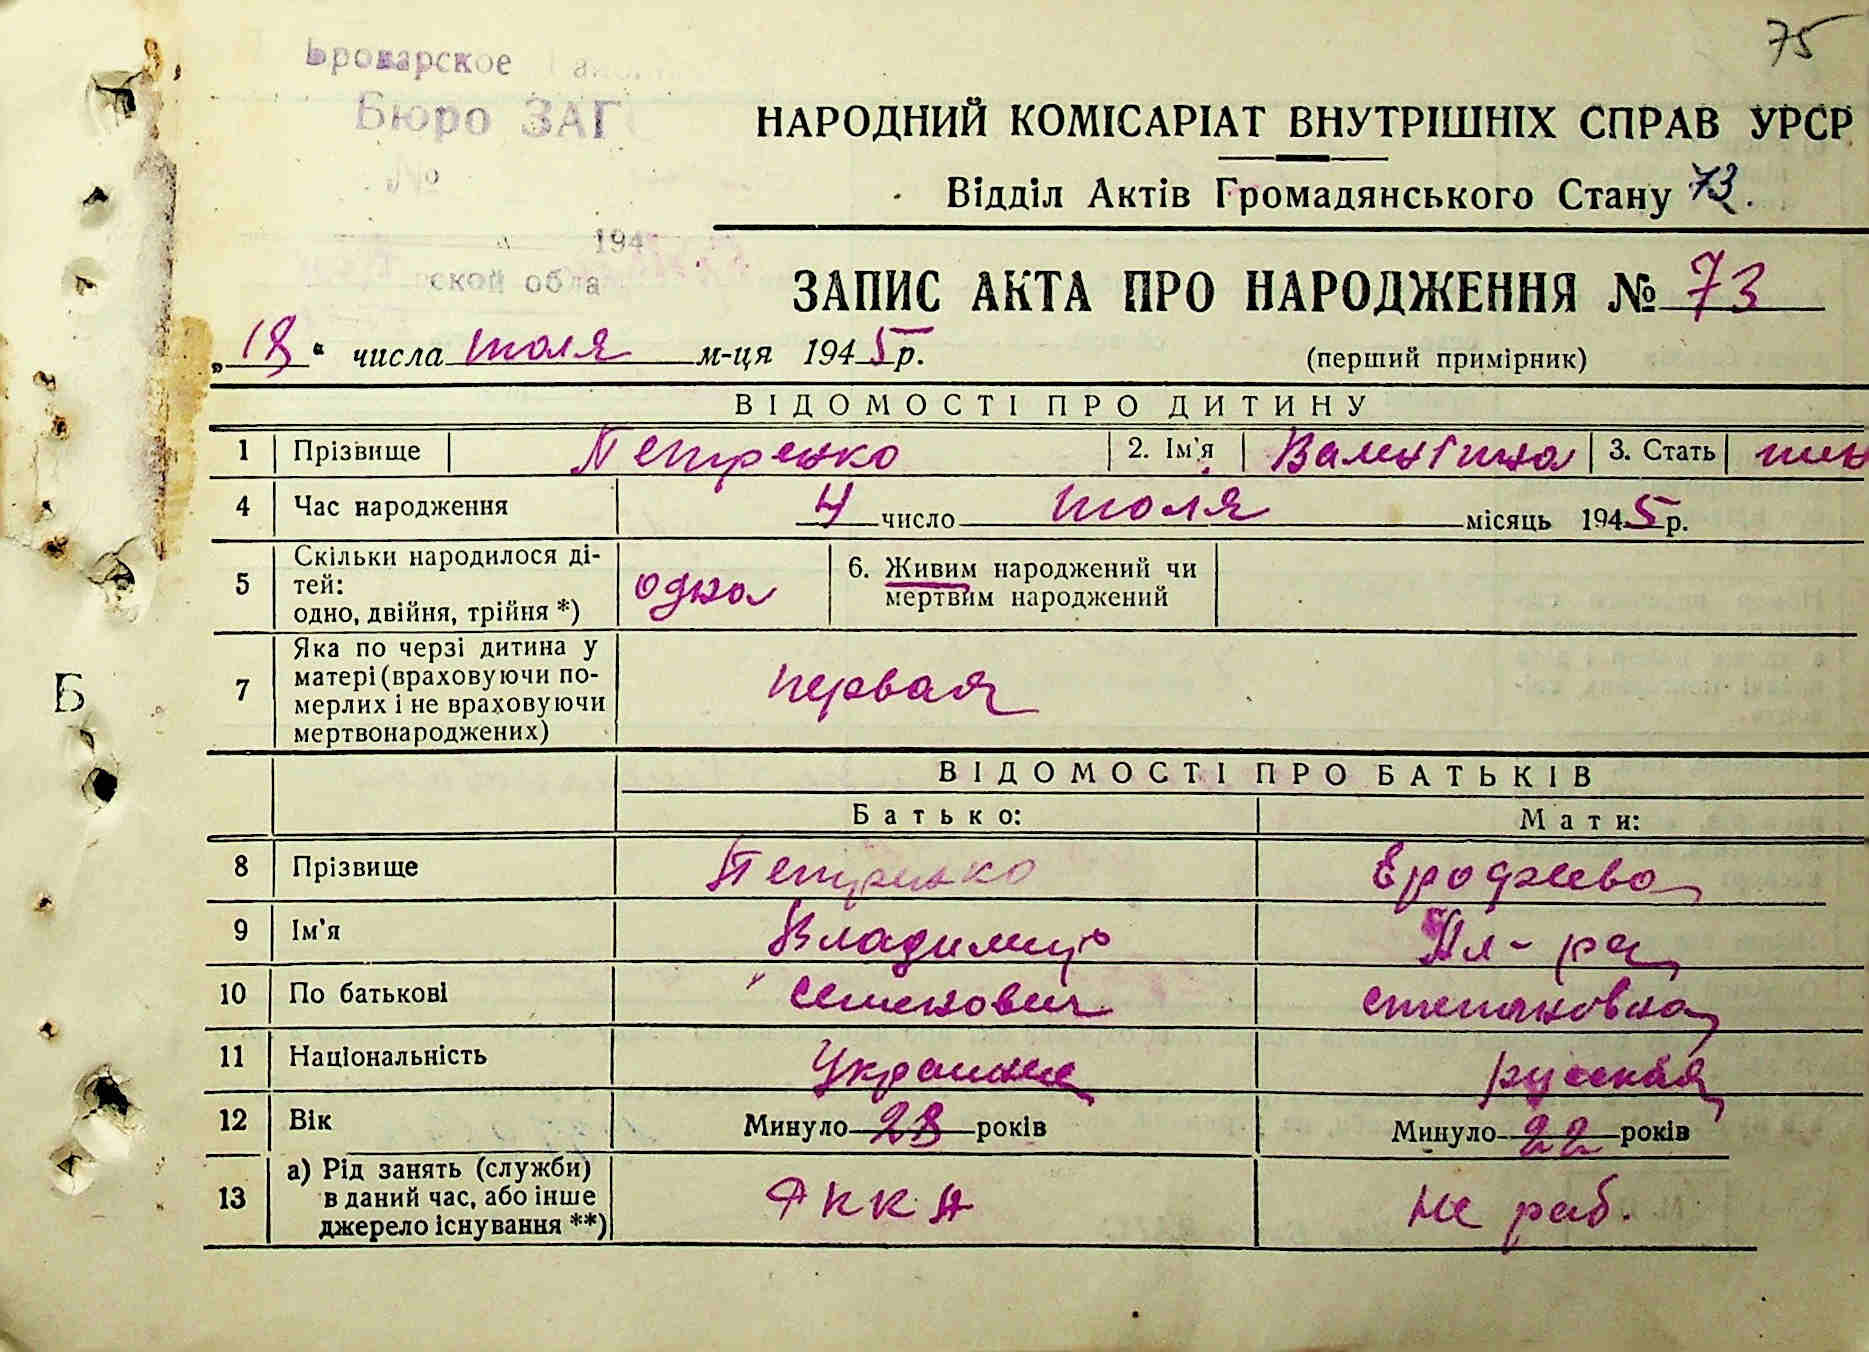 75
Броварское
Бюро ЗАГ
№
194
ской обла
НАРОДНИЙ КОМІСАРІАТ ВНУТРІШНІХ СПРАВ УРСР
Відділ Актів Громадянського Стану 73.
ЗАПИС АКТА ПРО НАРОДЖЕННЯ № 73
„18“ числа июля м-ця 1945 р. (перший примірник)
ВІДОМОСТІ ПРО ДИТИНУ
1 Прізвище Петренко 2. Ім'я Валентина 3. Стать
4 Час народження 4 число июля місяць 1945 р.
5 Скільки народилося ді-
тей:
одно, двійня, трійня *) одна 6. Живим народжений чи
мертвим народжений
7 Яка по черзі дитина у
матері (враховуючи по-
мерлих і не враховуючи
мертвонароджених) первая
Б
ВІДОМОСТІ ПРО БАТЬКІВ
Батько: Мати:
8 Прізвище Петренко
9 Ім'я Владимир
10 По батькові Семенович Степановна
11 Національність Украинец русская
12 Вік Минуло 23 років Минуло 22 років
13 а) Рід занять (служби)
в даний час, або інше
джерело існування **) РККА Не раб.